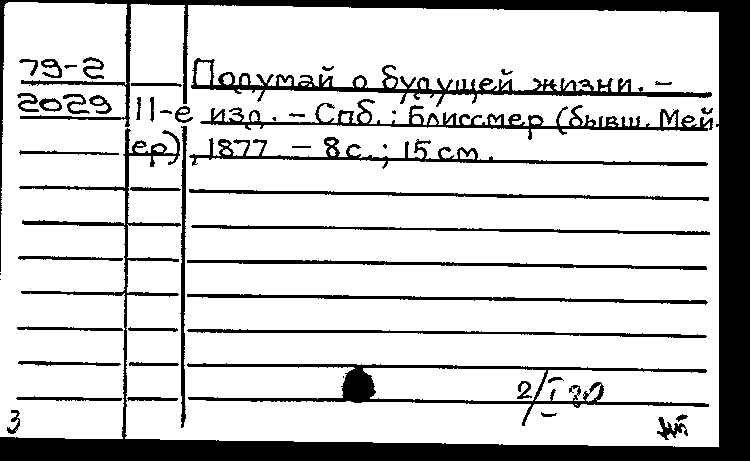 79-2 Подумай о будущей жизни. –
2029 11-е изд. – Спб. : Блиссмер (бывш. Мей-
ер), 1877 – 8 с. ; 15 см.
2/I 80
3